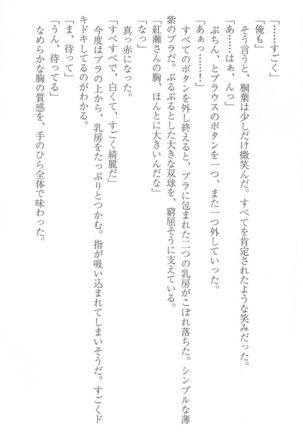 「……すごく」
「俺も」
　そう言うと、桐葉は少しだけ微笑んだ。すべてを肯定されたような笑みだった。
　ぷちん、とブラウスのボタンを一つ、また一つ外していった。
「あ……はぁ、ん」
「あぁっ……！」
　すべてのボタンを外し終えると、ブラに包まれた二つの乳房がこぼれ落ちた。シンプルな薄
紫のブラだ。ぷるぷるとした大きな双球を、窮屈そうに支えている。
「紅瀬さんの胸、ほんとに大きいんだな」
「なっ」
　真っ赤になった。
「すべすべで、白くて、すごく綺麗だ」
　今度はブラの上から、乳房をたっぷりとつかむ。指が吸い込まれてしまいそうだ。すごくド
キドキしてるのがわかる。
「ま、待って」
「うん、待ってる」
　なめらかな胸の質感を、手のひら全体で味わった。